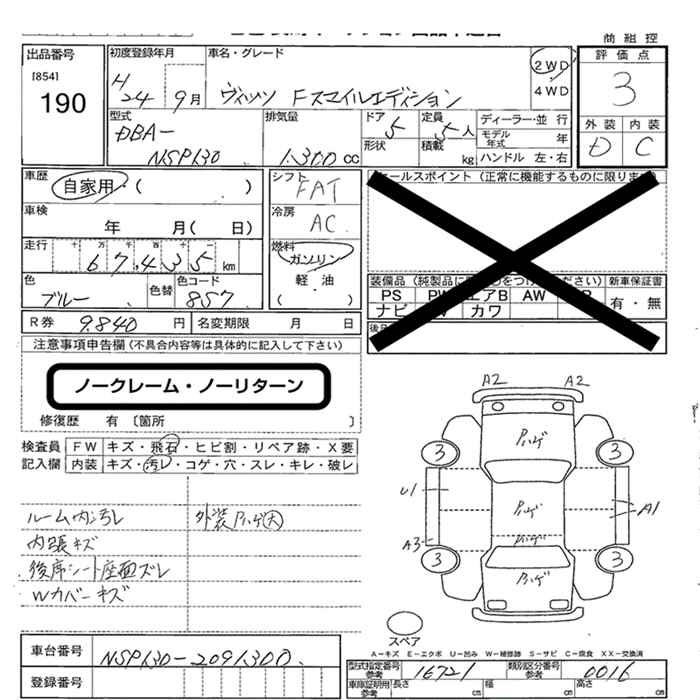 商 組 控
出品番号
[854]
190
初度登録年月
H
24 9月
車名・グレード
ヴィッツ Fスマイルエディション
2WD
4WD
評価点
3
外装 内装
D C
型式
DBA-
NSP130
排気量
1.300 cc
ドア 5
形状
定員 5人
積載 kg
ディーラー・並行
モデル年式 年
ハンドル 左・右
車歴
自家用・( )
車検
年 月( 日)
走行 十 万 千 百 十 一
67,435 km
色
ブルー
色替
色コード
8S7
シフト
FAT
冷房
AC
燃料
ガソリン
軽油
( )
セールスポイント (正常に機能するものに限ります
装備品 (純製品に ださい) 新車保証書
PS PW エアB AW
ナビ カワ
有・無
R券 9.840 円 名変期限 月 日
注意事項申告欄 (不具合内容等は具体的に記入して下さい)
ノークレーム・ノーリターン
修復歴 有 〔箇所 〕
検査員
記入欄
FW キズ・飛石・ヒビ割・リペア跡・X要
内装 キズ・汚レ・コゲ・穴・スレ・キレ・破レ
ルーム内汚レ 外装ハゲ大
内張キズ
後席シート座面ズレ
Wカバーキズ
A2 A2
ハゲ
3 3
U1
ハゲ
A1
A3
ハゲ
3 3
ハゲ
スペア
A-キズ E-エクボ U-凹み W-補修跡 S-サビ C-腐食 XX-交換済
車台番号 NSP130-2091300
登録番号
型式指定番号 参考 16721 類別区分番号 参考 0016
車庫証明用 参考 長さ cm 幅 cm 高さ cm